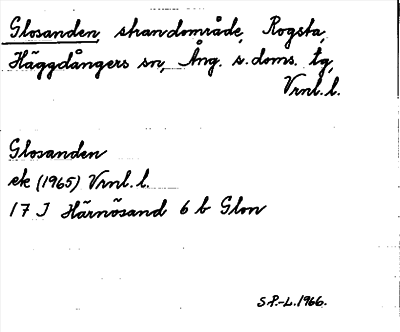 Glosanden, strandområde, Rogsta,
Häggdångers sn, Ång. s. doms. tg,
Vrnl. l.
Glosanden
ek (1965) Vrnl. l.
17 J Härnösand 6 b Glon
S P.-L. 1966.